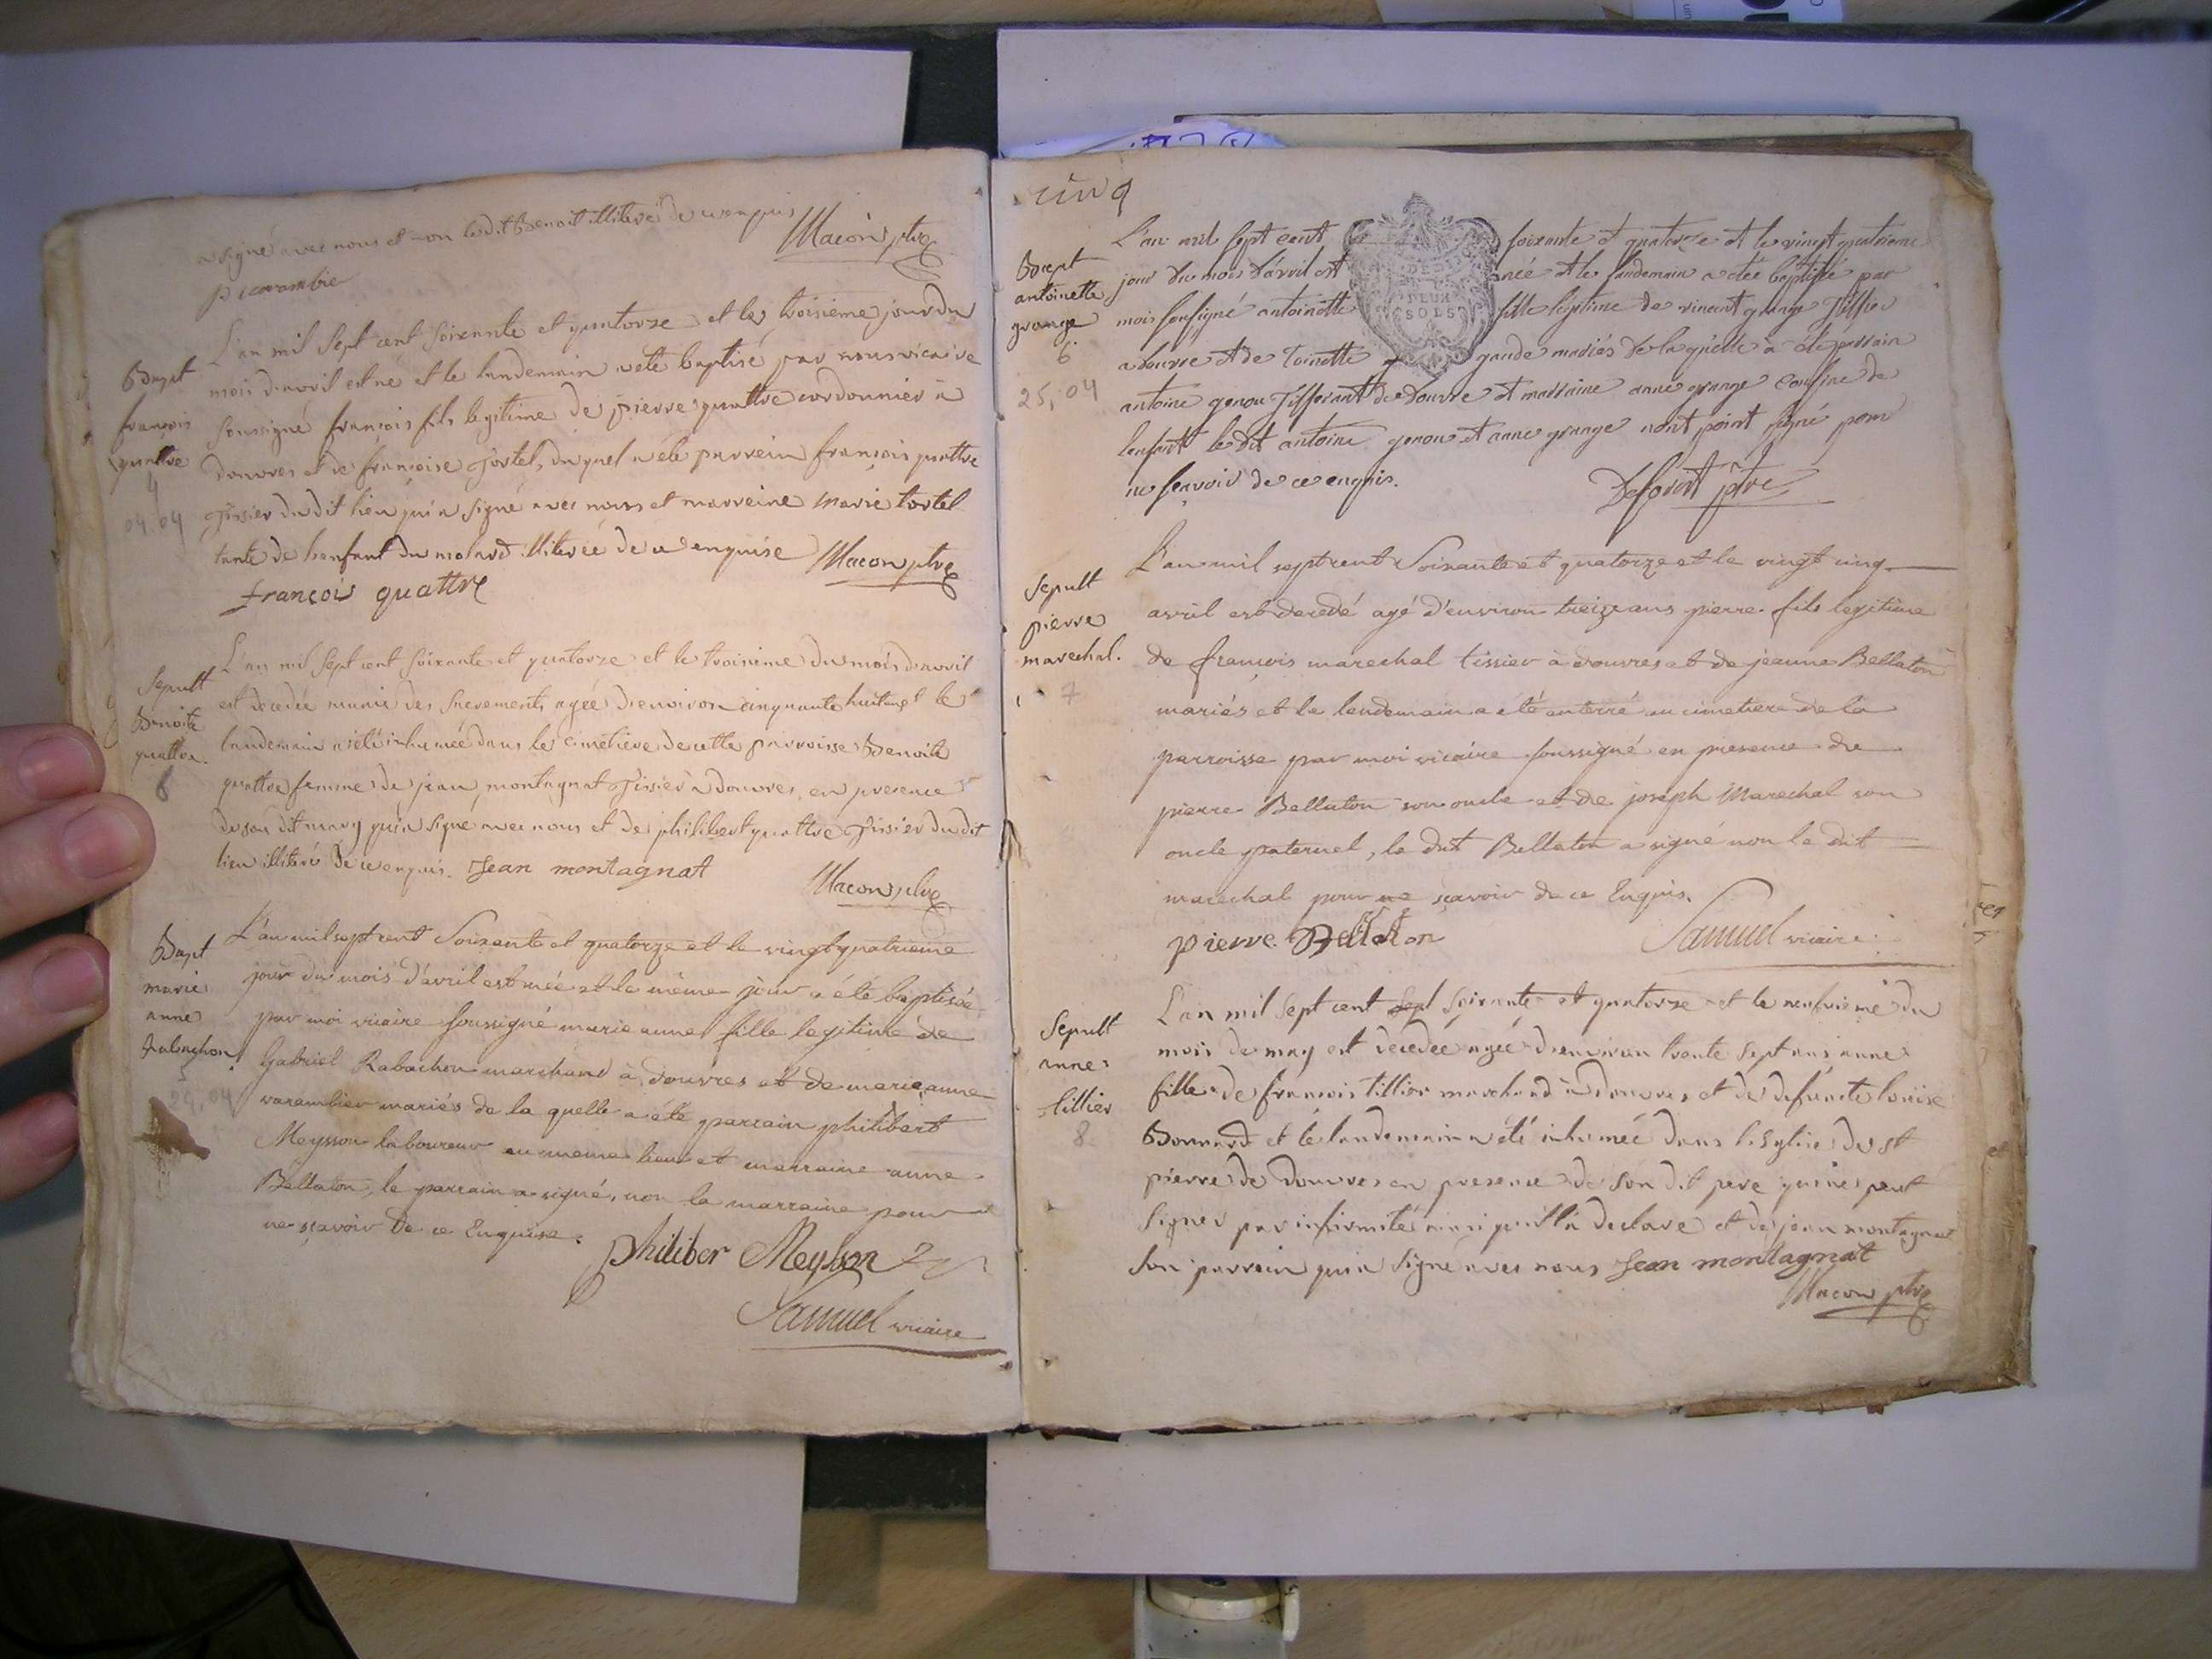 a signé avec nous et non ledit Benoit illiteré de ce enquis
Macon ptre
L'an mil Sept cent Soixante et quatorze et le troisieme jour du
mois d'avril est né et le lendemain a eté baptisé par nous vicaire
Soussigné françois fils legitime de pierre quattre cordonnier à
douvres et de françoise Tortel, du quel a été parrein françois quattre
Tissier du dit lieu qui a signé avec nous et marreine marie tortel
tante de l'enfant du molard illiterée de ce enquise Macon ptre
françois quattre
Bapt
françois
quattre
4
04.04
L'an mil Sept cent Soixante et quatorze et le troisieme du mois d'avril
est decedée munie des Sacrements agée d'environ cinquante huit ans et le
lendemain a été inhumée dans le cimetiere de cette parroisse Benoite
quattre femme de jean montagnat Tissier à douvres en presence
de son dit mary qui a signé avec nous et de philibert quattre Tissier du dit
lieu illiteré de ce enquis. Jean montagnat
Macon ptre
Sepult
Benoite
quattre.
6
L'an mil sept cent Soixante et quatorze et le vingt quatrieme
jour du mois d'avril est née et le même jour a été baptisée
par moi vicaire soussigné marie anne fille legitime de
Gabriel Rabachon marchand à douvres et de marie anne
varambier mariés de la quelle a été parrain philibert
Meysson laboureur au meme lieu et marraine anne
Bellaton, le parrain a signé, non la marraine pour
ne sçavoir de ce Enquise.
philiber Meysson
Samuel vicaire
Bapt
marie
anne
Rabachon
5
24.04
cinq
L'an mil sept cent soixante et quatorze et le vingt quatrieme
jour du mois d'avril est née et le lendemain a été baptisé par
moi soussigné antoinette fille legitime de vincent grange Tissier
a douvre et de toinette gande mariés de la quelle a été parrain
antoine genou Tisserant de douvre et marraine anne grange cousine de
lenfant le dit antoine genou et anne grange nont point signé pour
ne scavoir de ce enquis.
Deforest ptre
Bapt
antoinette
grange
6
25.04
L'an mil sept cent Soixante et quatorze et le vingt cinq
avril est decedé agé d'environ treize ans pierre fils legitime
de françois marechal tissier à douvres et de jeanne Bellaton
mariés et le lendemain a été enterré au cimetiere de la
parroisse par moi vicaire soussigné en presence de
pierre Bellaton son oncle et de joseph Marechal son
oncle paternel, le dit Bellaton a signé non le dit
marechal pour ne sçavoir de ce Enquis.
pierre Bellaton
Samuel vicaire
Sepult
pierre
marechal.
7
L'an mil Sept cent Sept Soixante et quatorze et le neufvieme du
mois de may est decedée agée d'environ trente Sept ans anne
fille de françois tillier marchand à douvres et de defuncte louise
Bonnard et le lendemain a été inhumée dans l'Eglise de st
pierre de douvres en presence de Son dit pere qui ne peut
Signer par infirmité ainsi qu'il l'a declaré et de jean montagnat
Son parrain qui a Signé avec nous Jean montagnat
Macon ptre
Sepult
anne
tillier
8
DEUX
SOLS